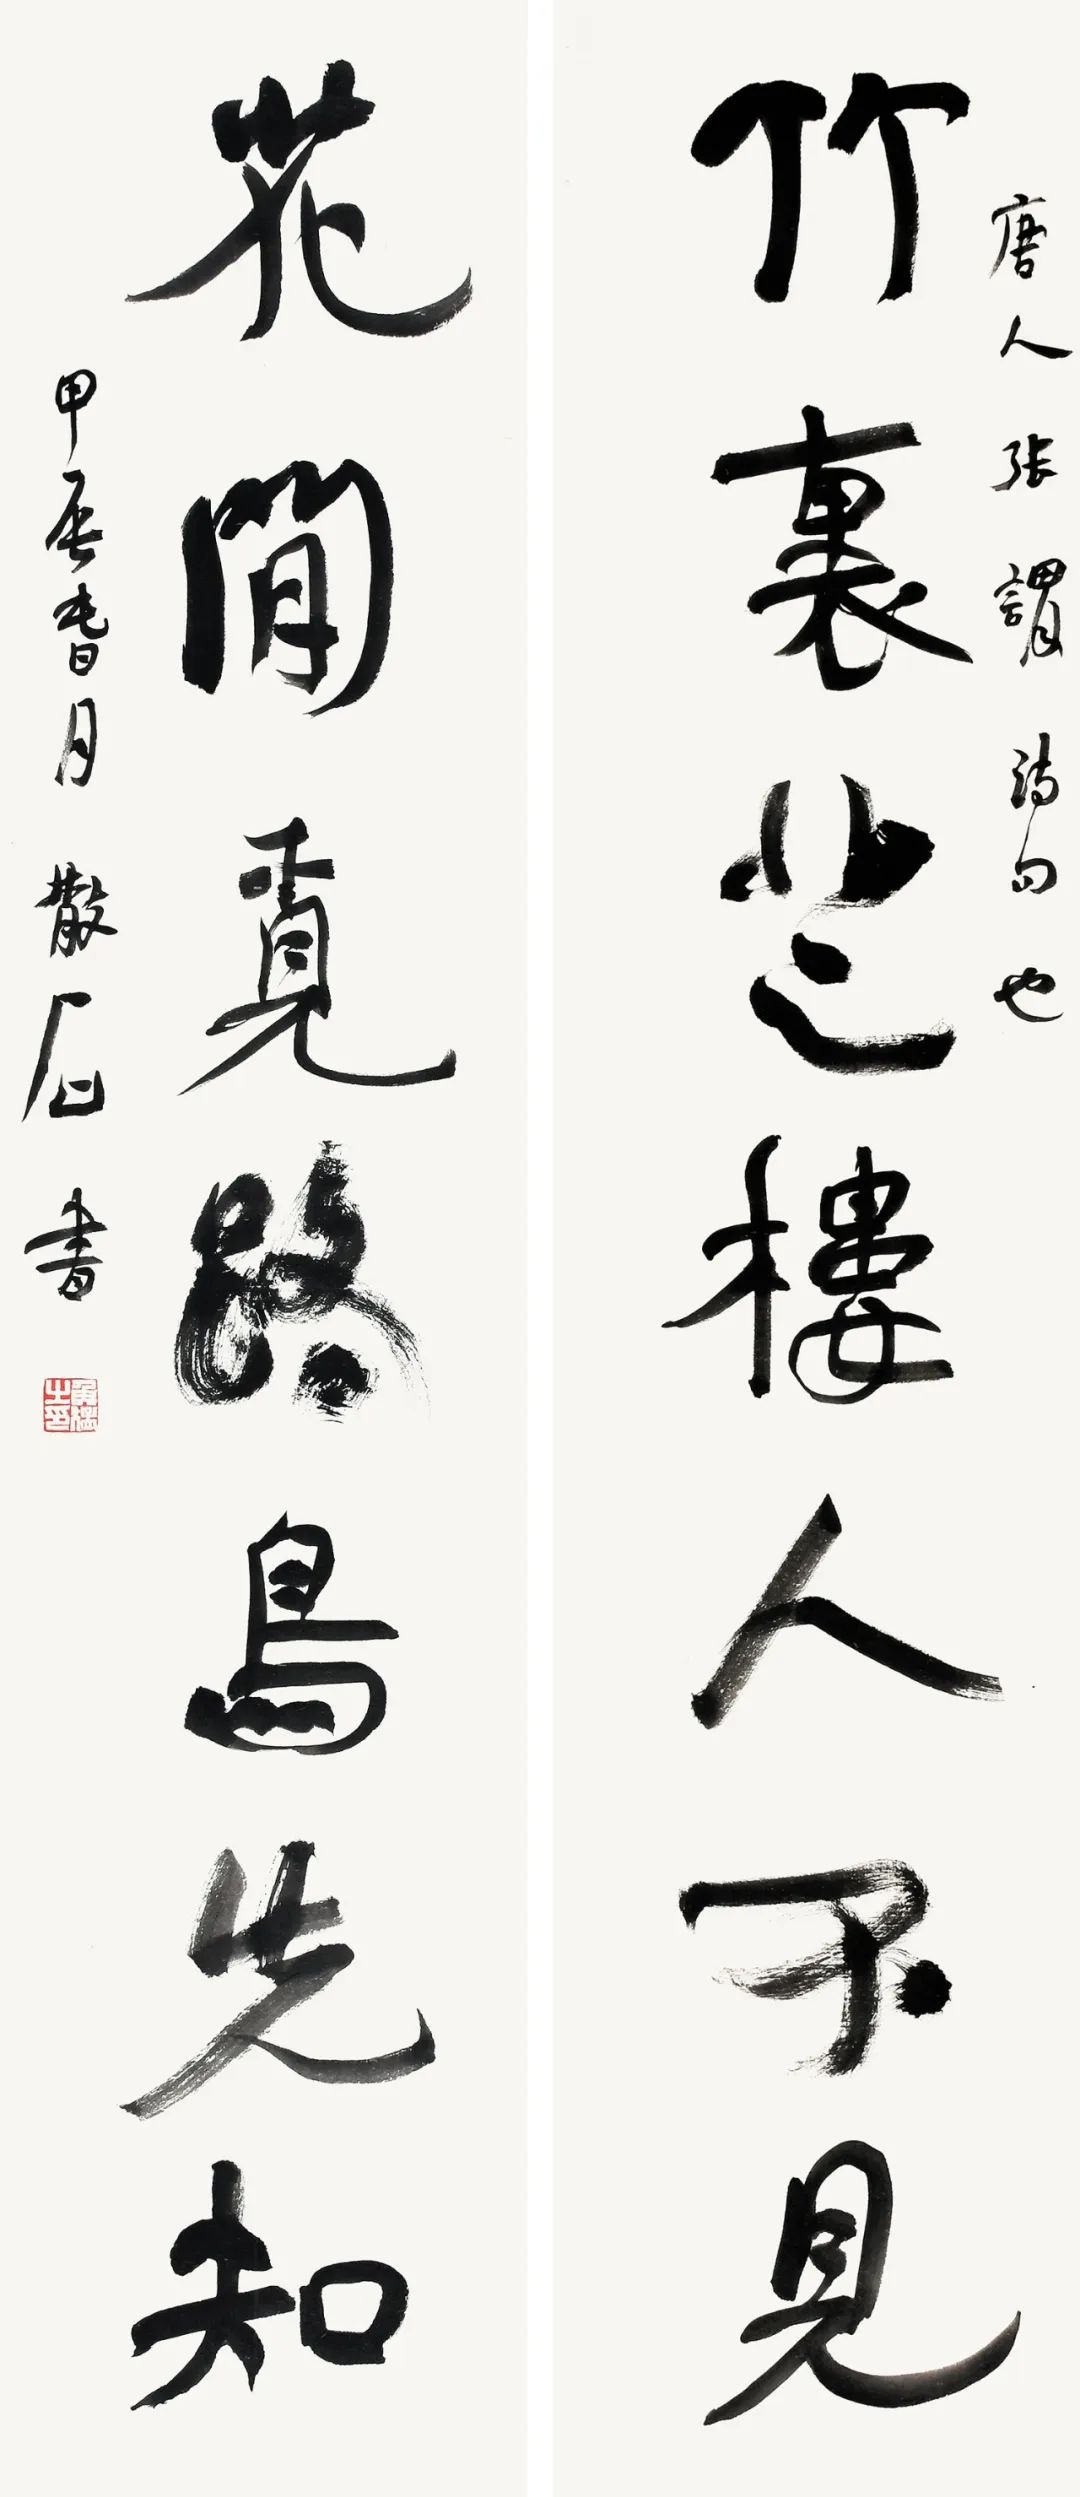 唐人張謂詩句也
竹裏登樓人不見
花間覓路鳥先知
甲辰旾月 散石書